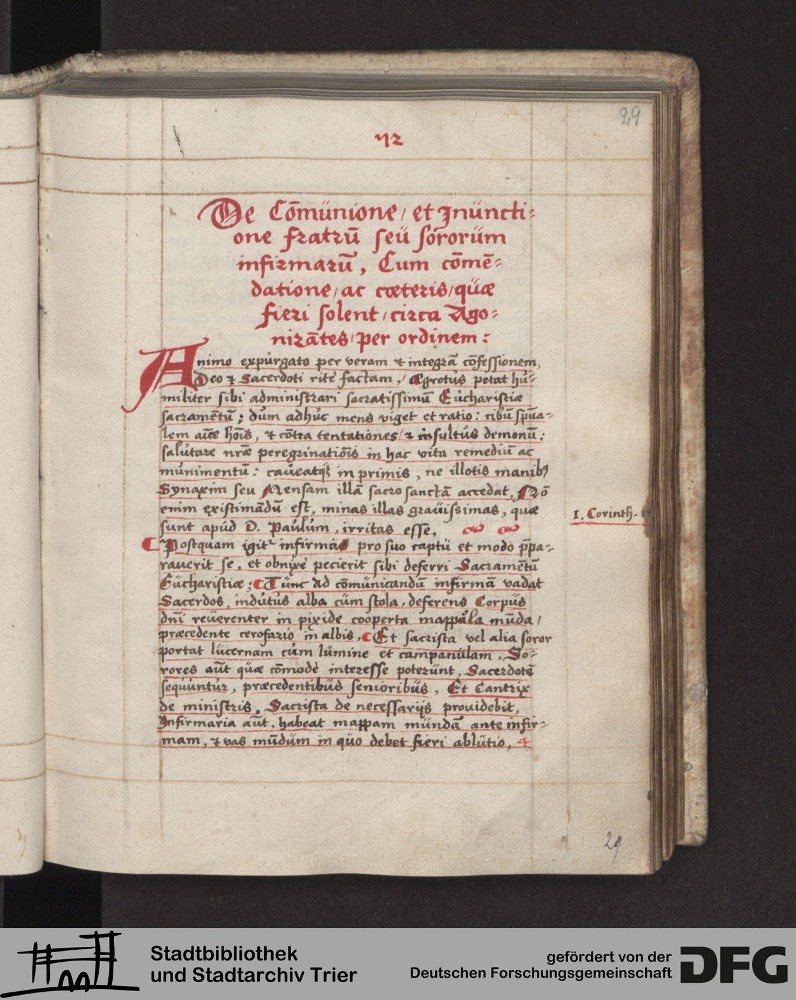 29
De Cōmunione / et Inuncti⸗
one fratrū seu sororum
infirmarū, Cum cōmē⸗
datione / ac cæteris / quæ
fieri solent / circa Ago⸗
nizātes / per ordinem :
Animo expurgato per veram & integrā cōfessionem,
Deo & Sacerdoti ritè factam, / Egrotus petat hu⸗
militer sibi administrari sacratissimū Eucharistiæ
sacramētū ; dum adhuc mens viget et ratio : cibū spūa⸗
lem hoīs, & cōtra tentationes / & insultus demonū :
salutare nr̄æ peregrinatiōis in hac vita remediū ac
munimentū : caueatq₃ in primis, ne illotis manibꝰ
Synaxim seu Mensam illā sacrosanctā accedat, Nō
enim existimādū est, minas illas grauissimas, quæ
1. Corinth.
sunt apud D. Paulum, irritas esse,
Postquam igitᵘʳ infirma pro suo captu et modo p̄pa⸗
rauerit se, et obnixè pecierit sibi deferri Sacramētū
Eucharistiæ ; Tunc ad cōmunicandū infirmā vadat
Sacerdos, indutus alba cum stola, deferens Corpus
dn̄i reuerenter in pixide cooperta mappula mūda /
præcedente cerofario in albis, Et sacrista vel alia soror
portat lucernam cum lumine et campanulam, So⸗
rores aut quæ cōmodè interesse poterunt, Sacerdotē
sequuntur, præcedentibus senioribus, Et Cantrix
de ministris, Sacrista de necessarijs prouidebit,
Infirmaria aūt, habeat mappam mundā ante infir⸗
mam, & vas mūdum in quo debet fieri ablutio,
29
Stadtbibliothek
und Stadtarchiv Trier
gefördert von der
Deutschen Forschungsgemeinschaft
DFG